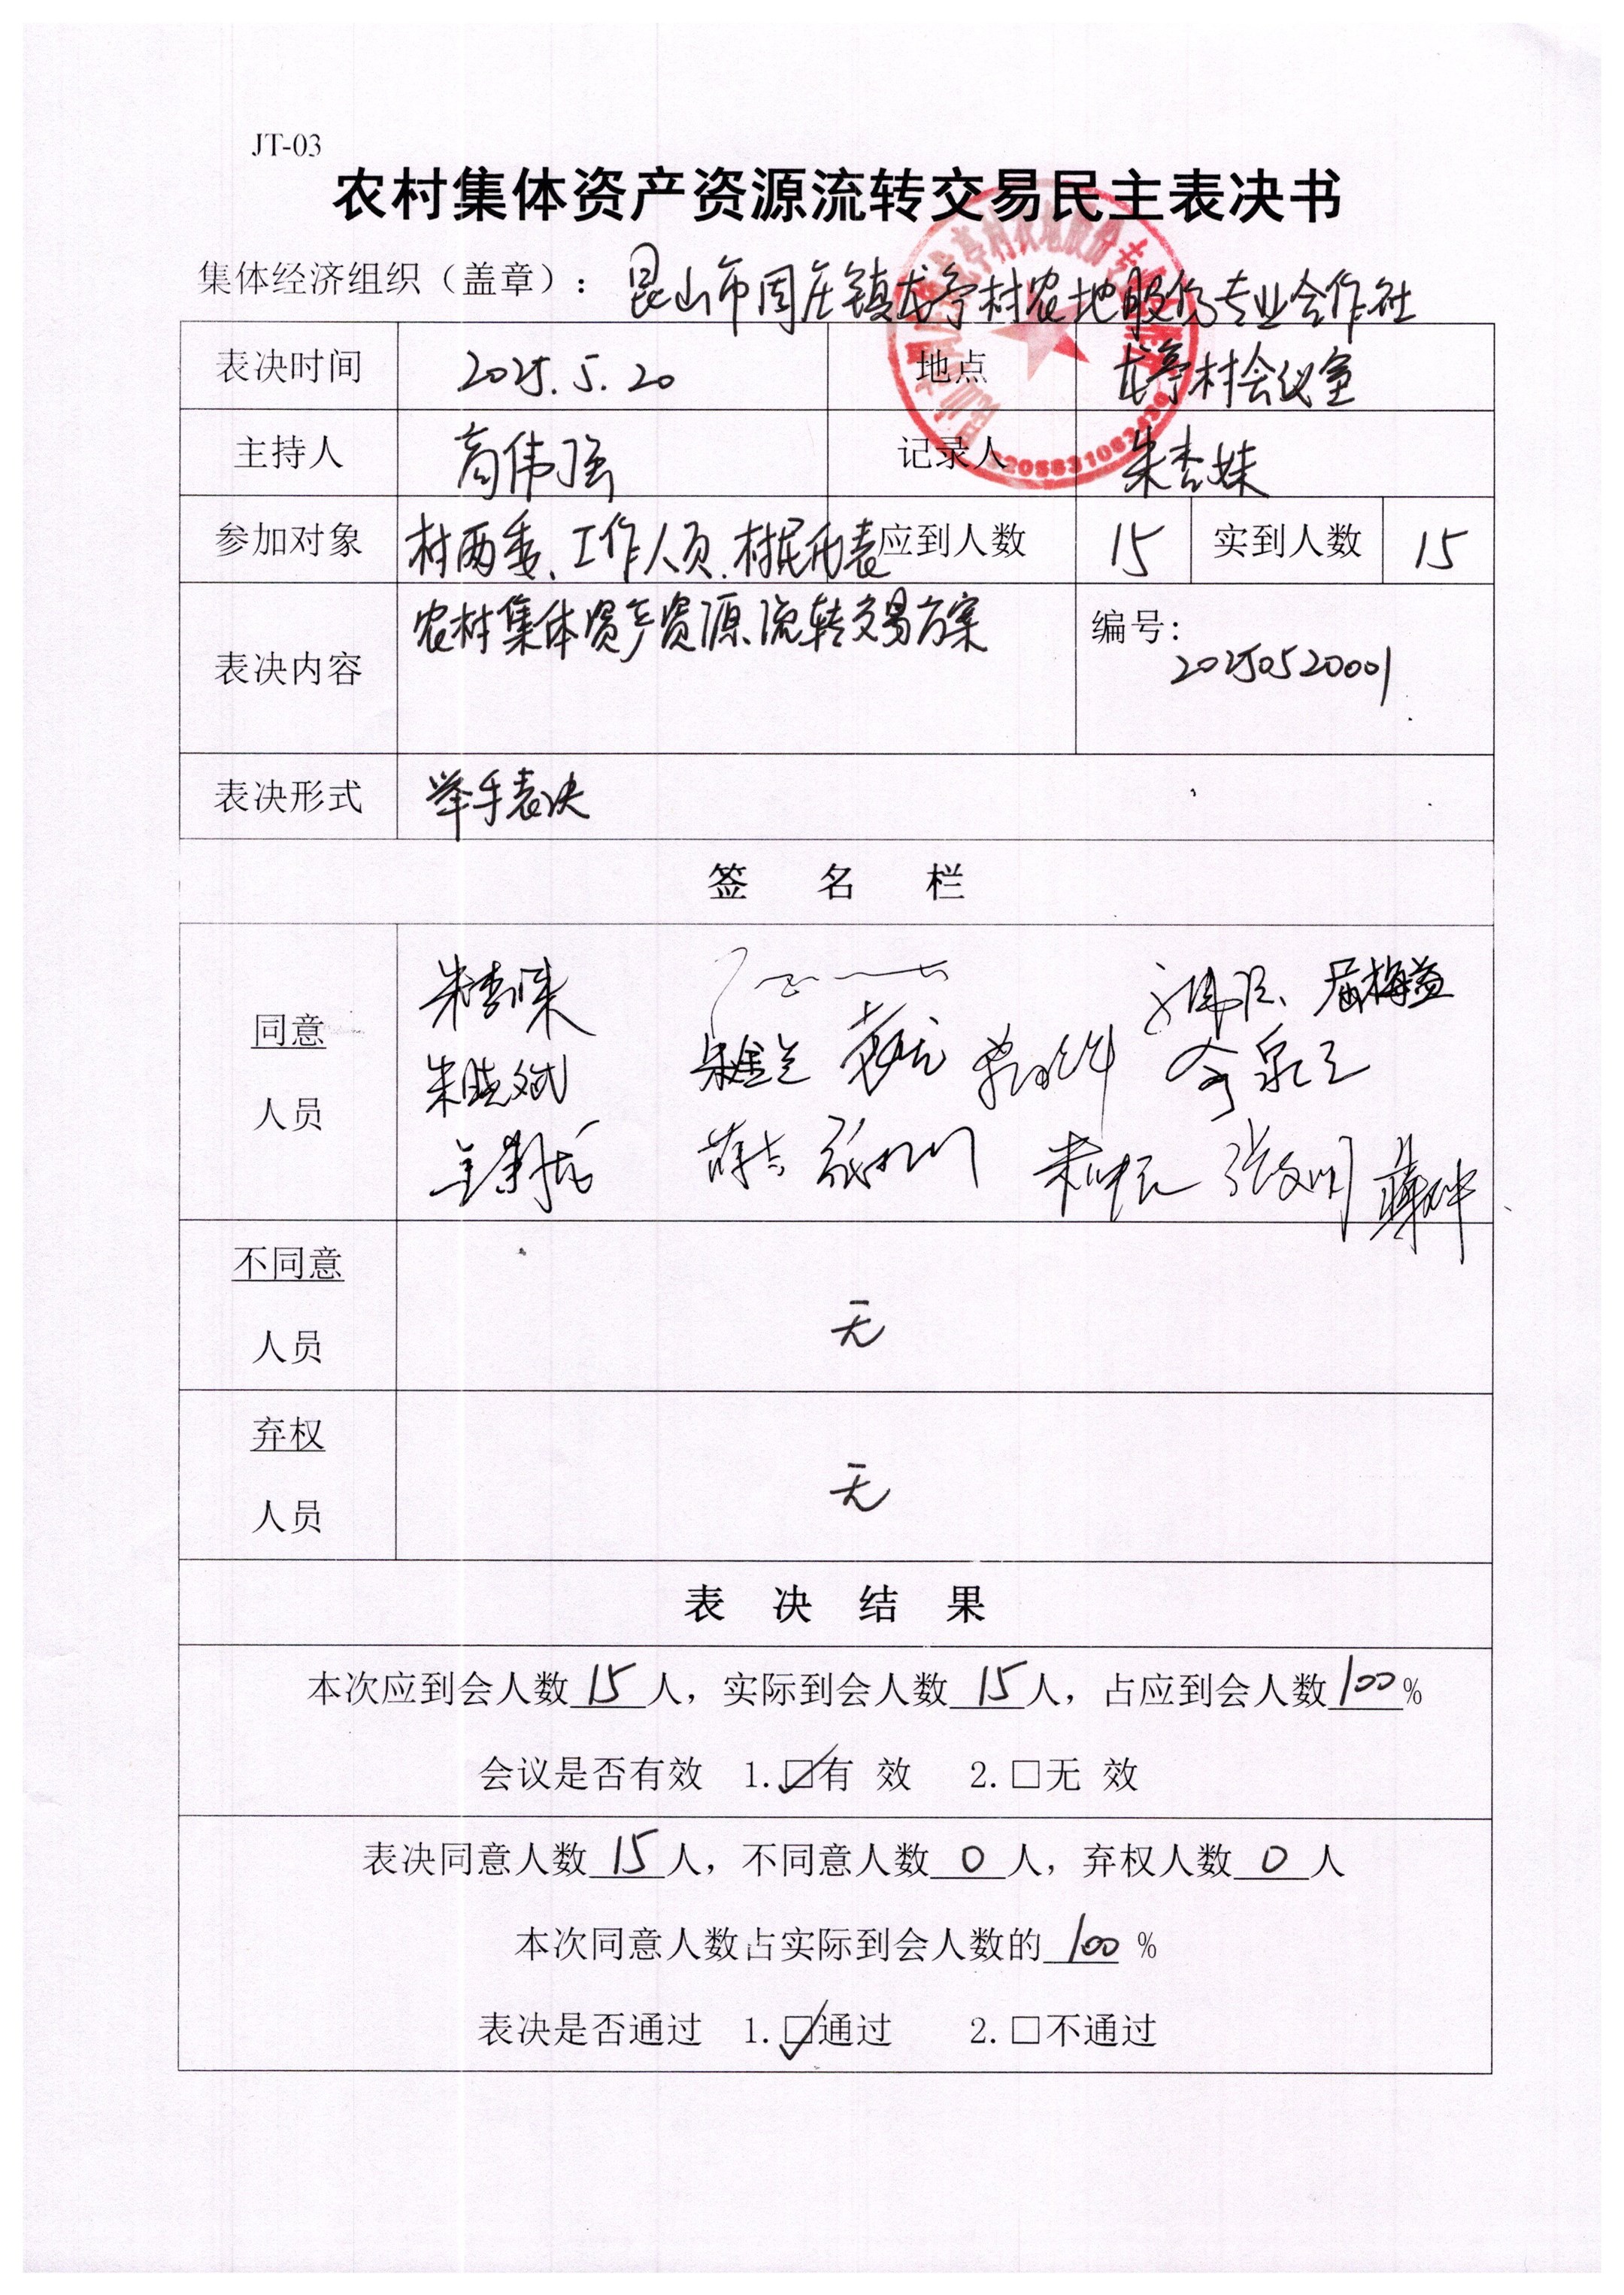 JT-03
农村集体资产资源流转交易民主表决书
集体经济组织（盖章）：昆山市周庄镇龙亭村农地股份专业合作社
表决时间 2025.5.20 地点 龙亭村会议室
主持人 高伟强 记录人 朱杏妹
参加对象 村两委、工作人员、村民代表 应到人数 15 实到人数 15
表决内容 农村集体资产资源流转交易方案 编号：
20250520001
表决形式 举手表决
签 名 栏
同意
人员
朱晓斌 朱金兰
张文明
不同意
人员
无
弃权
人员
无
表 决 结 果
本次应到会人数 15 人，实际到会人数 15 人，占应到会人数 100 %
会议是否有效 1.☑有 效 2.□无 效
表决同意人数 15 人，不同意人数 0 人，弃权人数 0 人
本次同意人数占实际到会人数的 100 %
表决是否通过 1.☑通过 2.□不通过